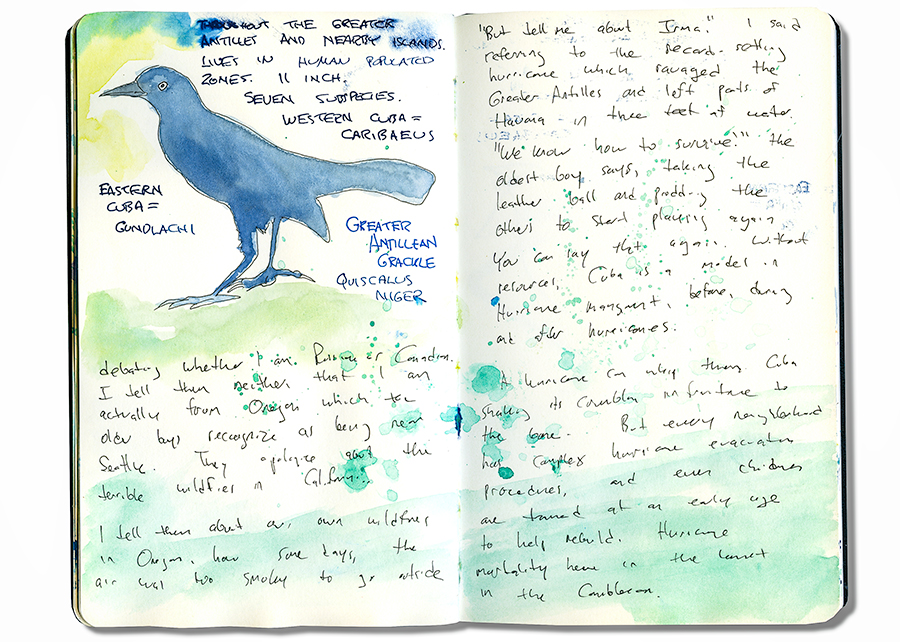 THROUGHOUT THE GREATER
ANTILLES AND NEARBY ISLANDS.
LIVES IN HUMAN POPULATED
ZONES. 11 INCH.
SEVEN SUBSPECIES.
WESTERN CUBA =
CARIBAEUS
EASTERN
CUBA =
GUNDLACHI
GREATER
ANTILLEAN
GRACKLE
QUISCALUS
NIGER
debating whether I am Russian or Canadian.
I tell them neither that I am
actually from Oregon which the
older boys recognize as being near
Seattle. They apologize about the
terrible wildfires in California...
I tell them about our own wildfires
in Oregon, how some days, the
air was too smoky to go outside
"But tell me about Irma." I said
referring to the record-setting
hurricane which ravaged the
Greater Antilles and left parts of
Havana in three feet of water.
"We know how to survive!" the
oldest boy says, taking the
leather ball and prodding the
others to start playing again
You can say that again. Without
resources, Cuba is a model in
Hurricane management, before, during
and after hurricanes.
A hurricane can whip through Cuba
shaking its crumbling infrastructure to
the bone. But every neighborhood
has complex hurricane evacuation
procedures, and even children
are trained at an early age
to help rebuild. Hurricane
mortality here is the lowest
in the Caribbean.